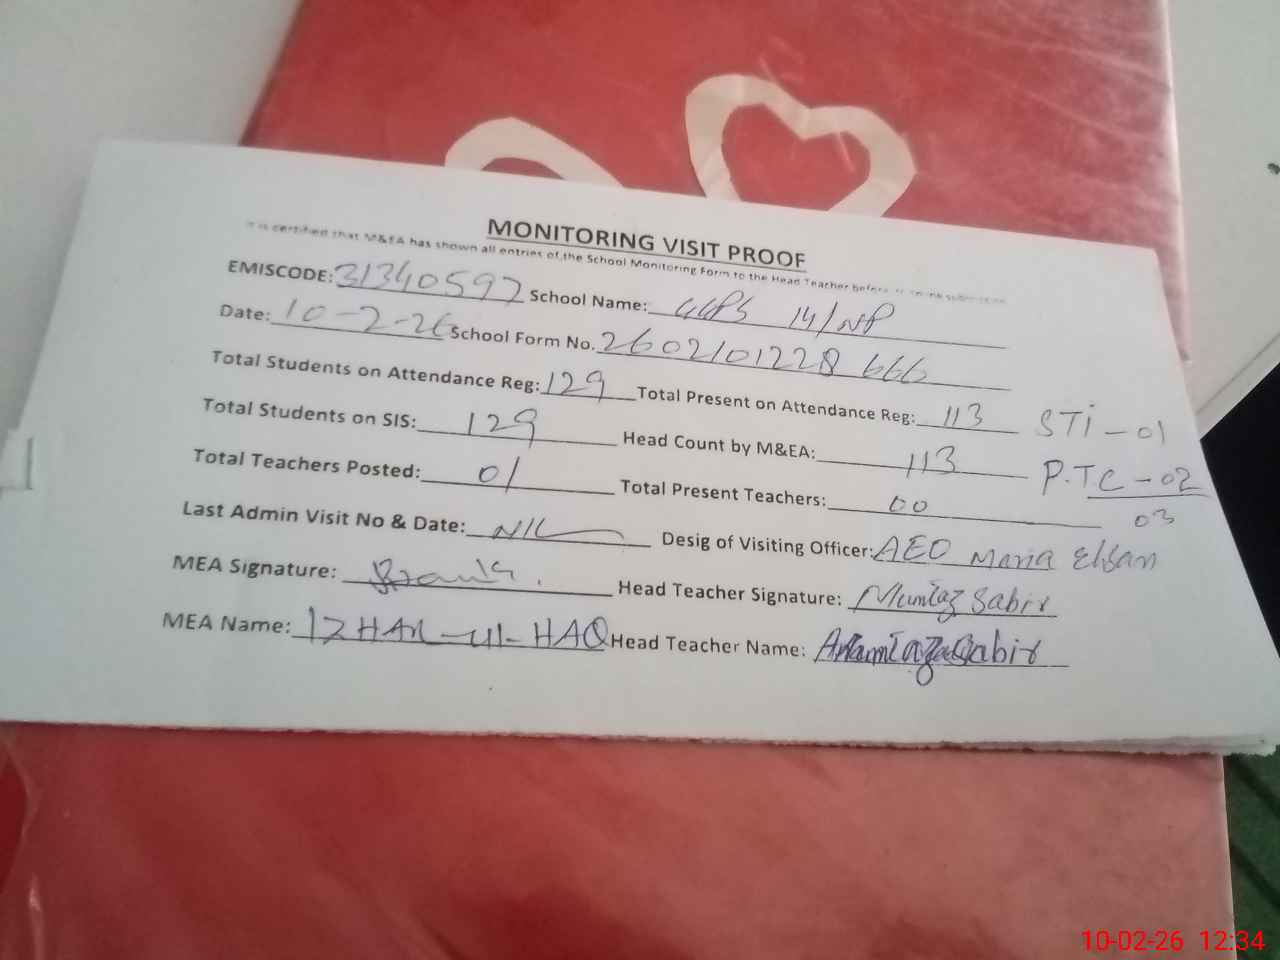 MONITORING VISIT PROOF
It is certified that M&EA has shown all entries of the School Monitoring Form to the Head Teacher before
EMISCODE: 31340597 School Name: GGPS 14/NP
Date: 10-2-26 School Form No. 2602101228 666
Total Students on Attendance Reg: 129 Total Present on Attendance Reg: 113 STi-01
Total Students on SIS: 129 Head Count by M&EA: 113 P.TC-02
Total Teachers Posted: 01 Total Present Teachers: 00 03
Last Admin Visit No & Date: NIL Desig of Visiting Officer: AEO Maria Ehsan
MEA Signature: Head Teacher Signature: Mumtaz Sabir
MEA Name: IZHAR-UL-HAQ Head Teacher Name: Sabir
10-02-26 12:34